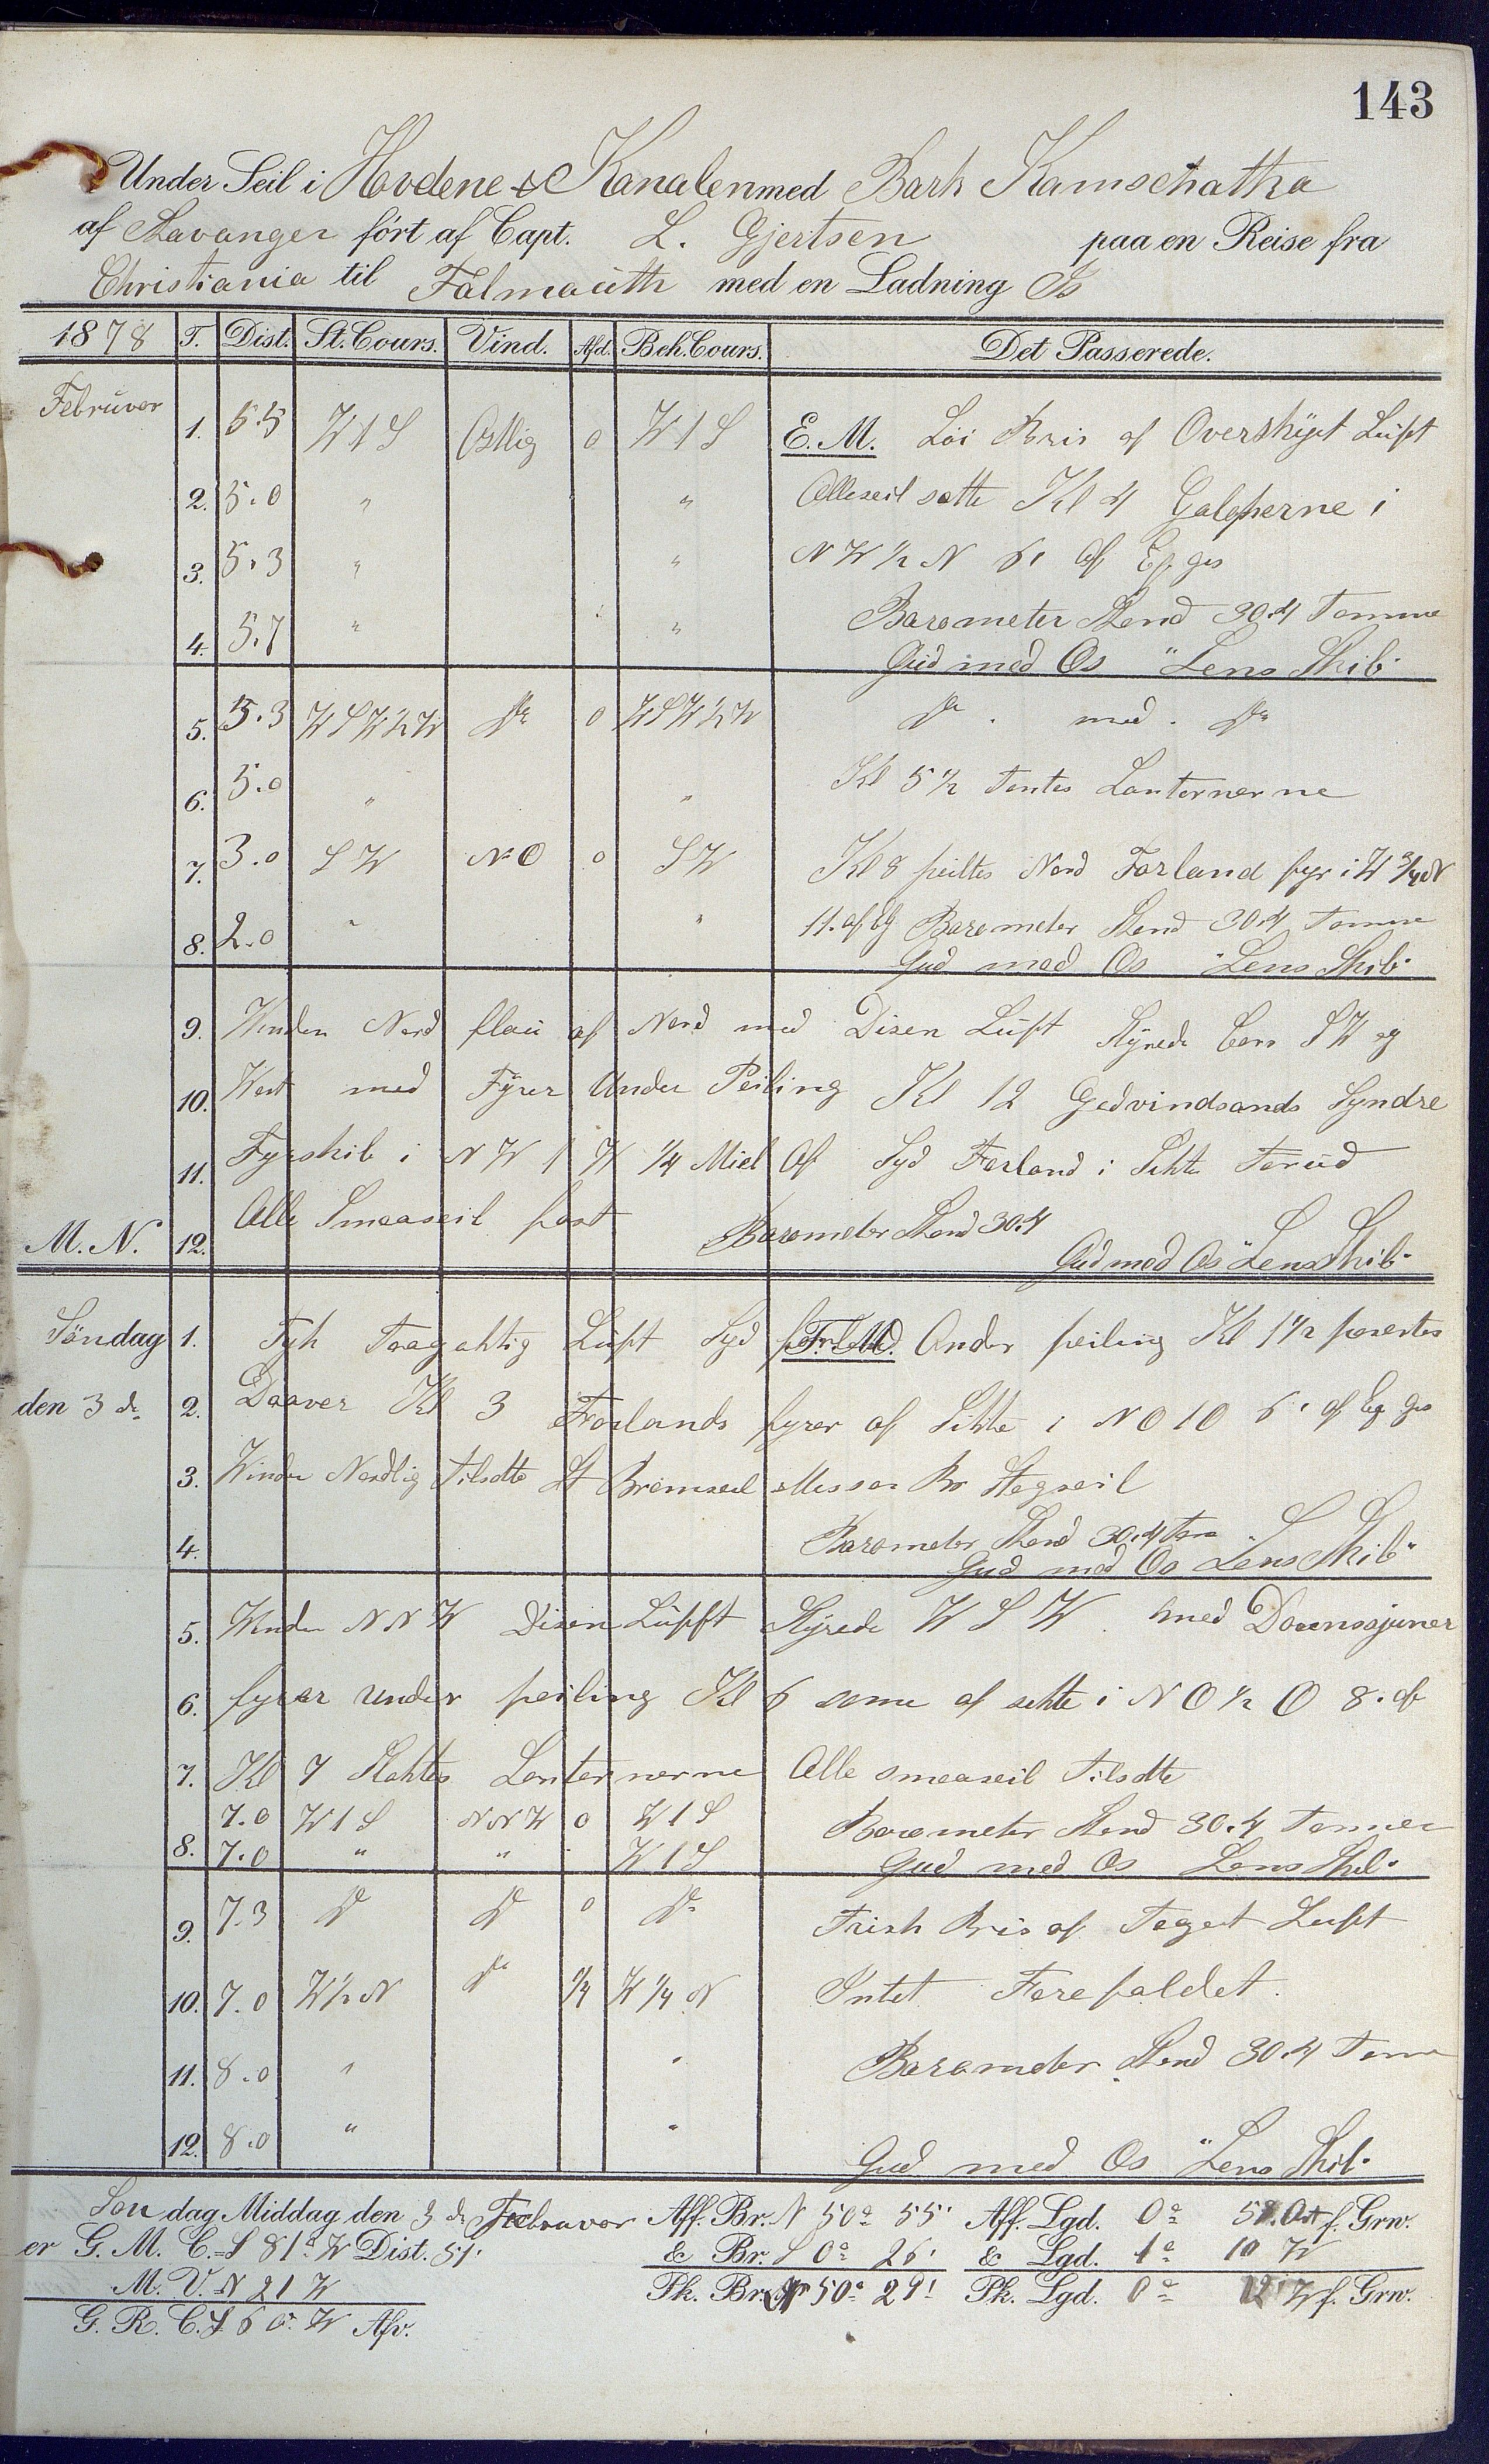 143
Under Seil i Hovdene & Kanalen med Bark Kamschatka
af Stavanger ført af Capt. L. Gjertsen paa en Reise fra
Christiania til Falmouth med en Ladning Is
1878 T. Dist. St. Cours. Vind. Afd. Beh. Cours. Det Passerede.
Februar 1. 5.5 W t S Østlig 0 W t S E. M. Löi Bris af Overskyet Luft
2. 5.0 " " Alleseil satte Kl 4 Galoperne i
3. 5.3 " " N W 1/2 N 6' af Eg. gs
4. 5.7 " " Barometer Stand 30.4 Tomme
Gud med Os "Lens Skib"
5. 5.3 W S W 1/2 W Do 0 W S W 1/2 W Do . med . Do
6. 5.0 " " Kl 5 1/2 Tentes Lanternerne
7. 3.0 S W N O 0 S W Kl 8 peiltes Nord Forland fyr i W 3/4 N
8. 2.0 " " 11. af Eg Barometer Stand 30.4 Tomme
Gud med Os "Lens Skib"
9. Vinden Nord flau af Nord med Disen Luft Styrede Cors S W og
10. West med Fyrer Under Peiling Kl 12 Gedvindsands Syndre
11. Fyrskib i N W t W 1/4 Miel Af Syd Forland i Sikte Forud
M. N. 12. Alle Smaaseil fast Barometer Stand 30.4
Gud med Os "Lens Skib"
Söndag 1. Tyk Taagaktig Luft Syd F. M. Under peiling Kl 1 1/2 paseertes
den 3 de 2. Daaver Kl 3 Forlands fyrer af Sikte i N O t O 6' af Eg gs
3. Vinden Nordlig Tilsatte St Bramseil Messan Br Stagseil
4. Barometer Stand 30.4 Tom
Gud med Os "Lens Skib"
5. Vinden N N W Disen Lufft Styrede W S W med Doeenssjuner
6. fyrer under peiling Kl 6 same af sikte i N O 1/2 O 8. af
7. Kl 7 Slaktes Lanternerne Alle smaaseil Tilsatte
7.0 W t S N N W 0 W t S Barometer Stand 30.4 Tommer
8. 7.0 " " W t S Gud med Os Lens Skib"
9. 7.3 Do Do 0 Do Frisk Bris af Taaget Luft
10. 7.0 W 1/2 N Do 1/4 W 1/4 N Intet Forefaldet.
11. 8.0 " " Barometer Stand 30.4 Tomm
12. 8.0 " "
Gud med Os "Lens Skib"
Sondag Middag den 3 de Februar Aff. Br. N 50° 55' Aff. Lgd. 0° Ost f. Grw.
er G. M. C. S 81° W Dist. 51' & Br. S 0° 26' & Lgd. 1° 10 W
M. V. N 21 W Pk. Br. N 50° 29' Pk. Lgd. 0° 12' W f. Grw.
G. R. C. S 60° W Afv.